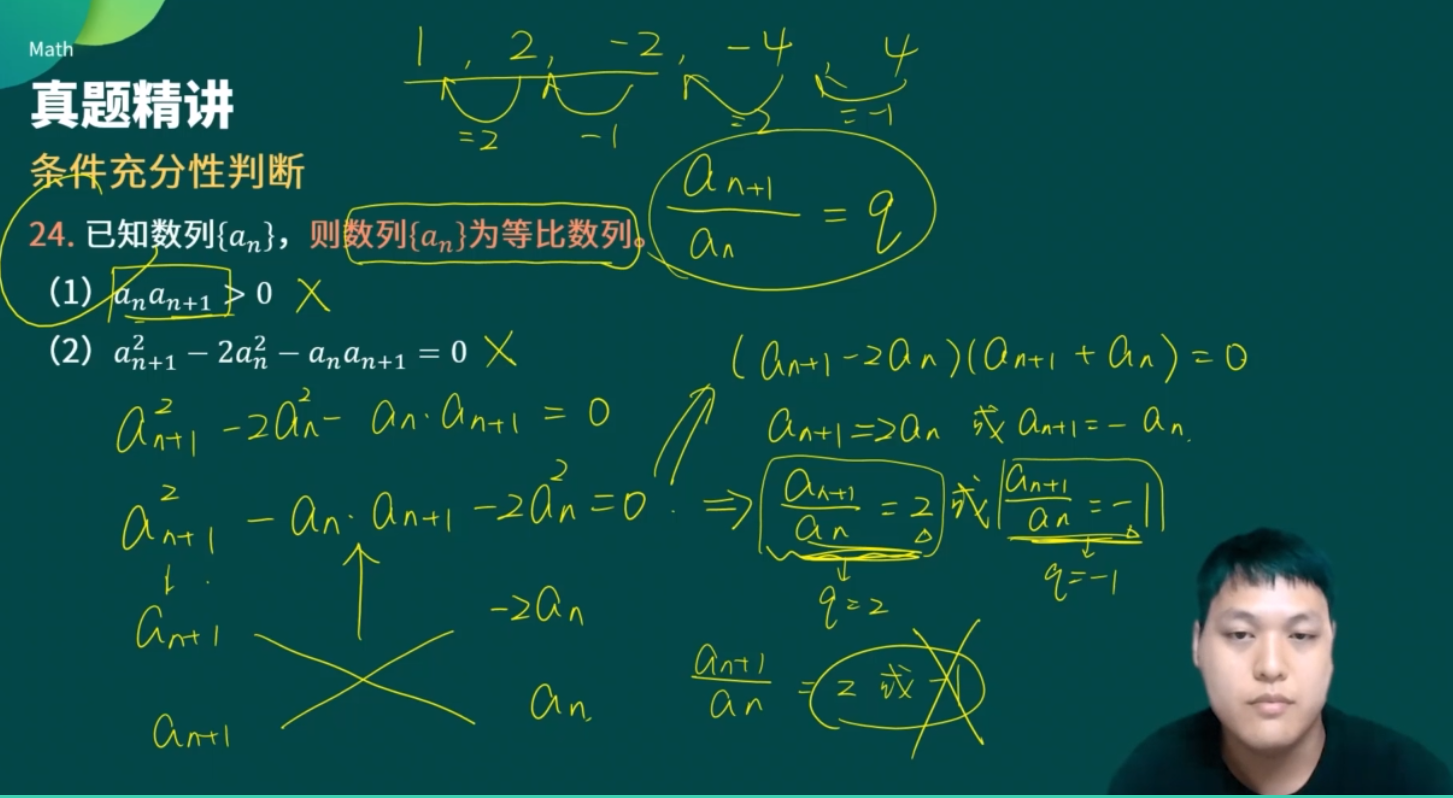 Math
真题精讲
条件充分性判断
24. 已知数列{aₙ}，则数列{aₙ}为等比数列。
（1）aₙaₙ₊₁ > 0 X
（2）a²ₙ₊₁ − 2a²ₙ − aₙaₙ₊₁ = 0 X
1, 2, -2, -4, 4
=2 -1 =2 =-1
aₙ₊₁/aₙ = q
a²ₙ₊₁ - 2a²ₙ - aₙ·aₙ₊₁ = 0
a²ₙ₊₁ - aₙ·aₙ₊₁ - 2a²ₙ = 0
aₙ₊₁ -2aₙ
aₙ₊₁ aₙ
(aₙ₊₁ - 2aₙ)(aₙ₊₁ + aₙ) = 0
aₙ₊₁ = 2aₙ 或 aₙ₊₁ = -aₙ
⇒ aₙ₊₁/aₙ = 2 或 aₙ₊₁/aₙ = -1
q=2 q=-1
aₙ₊₁/aₙ = 2 或 -1